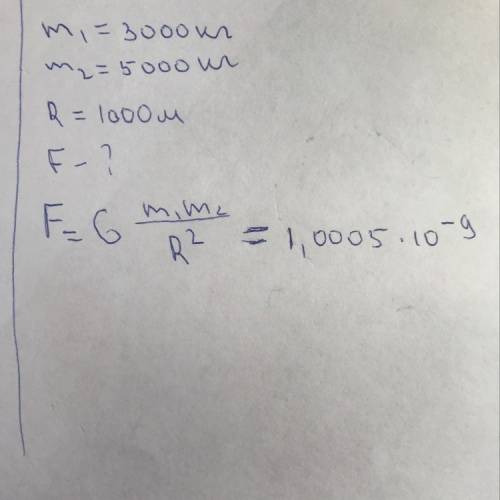 m₁ = 3000 кг
m₂ = 5000 кг
R = 1000 м
F - ?
F = G m₁m₂ / R² = 1,0005 · 10⁻⁹